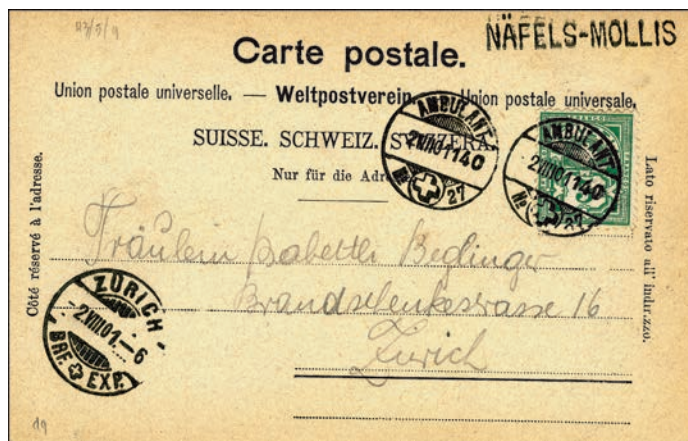 NÄFELS-MOLLIS
Carte postale.
Union postale universelle. — Weltpostverein. Union postale universale.
SUISSE. SCHWEIZ. SVIZZERA.
Nur für die Adr
AMBULANT
2.VIII.01 11 40
No 27
AMBULANT
2.VIII.01 11 40
No 27
FRANCO
Côté réservé à l'adresse.
Lato riservato all' indirizzo.
Fräulein Babette Beglinger
Brandschenkestrasse 16
Zürich
ZÜRICH
2.VIII.01.–6
BRF. EXP.
19